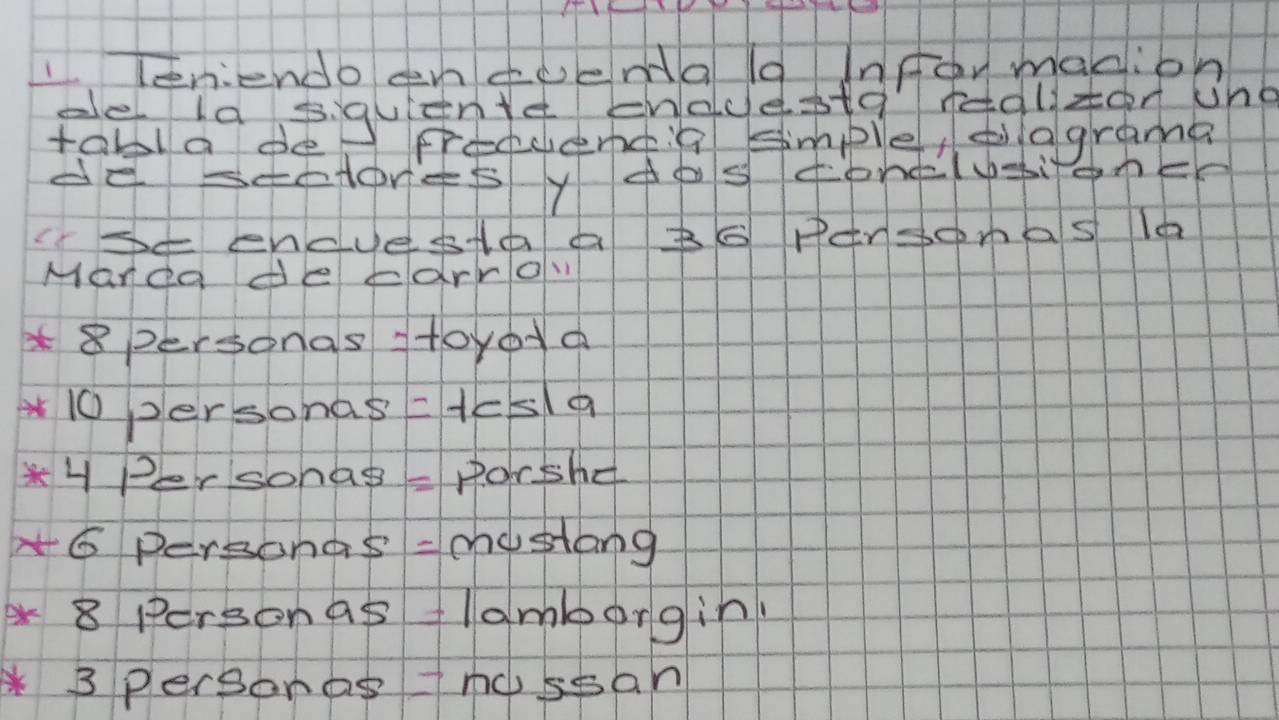 1 Teniendo en cuenta la Informacion
de la siguiente encuesta realizar una
tabla de frecuencia simple, diagrama
de sectores y dos conclusiones
"Se encuesta a 36 Personas la
Marca de carro"
* 8 personas = toyota
* 10 personas = tesla
* 4 Personas = Porshe
* 6 Personas = mustang
* 8 Personas = lamborgini
* 3 personas = nussan